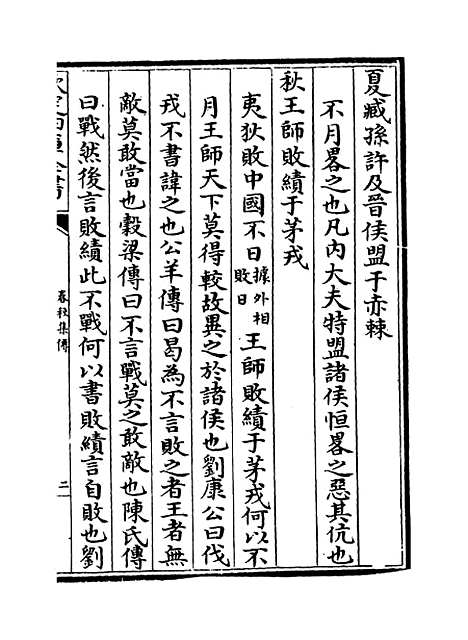 夏臧孫許及晉侯盟于赤棘
不月畧之也凡内大夫特盟諸侯恒畧之惡其伉也
秋王師敗績于茅戎
夷狄敗中國不日據外相敗日王師敗績于茅戎何以不
月王師天下莫得較故異之於諸侯也劉康公曰伐
戎不書諱之也公羊傳曰曷為不言敗之者王者無
敵莫敢當也穀梁傳曰不言戰莫之敢敵也陳氏傳
曰戰然後言敗績此不戰何以書敗績言自敗也劉
欽定四庫全書
春秋集傳
二